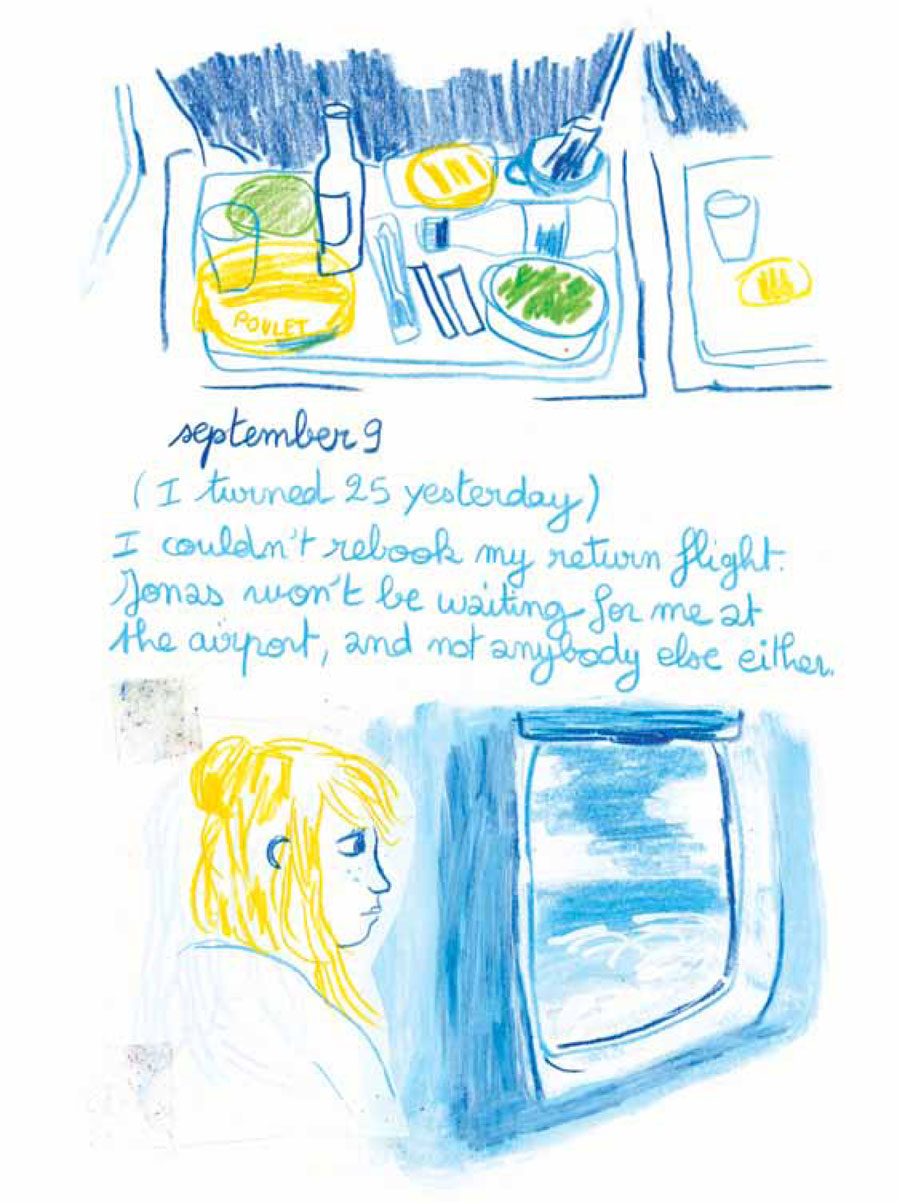 POULET
september 9
(I turned 25 yesterday)
I couldn't rebook my return flight.
Jonas won't be waiting for me at
the airport, and not anybody else either.